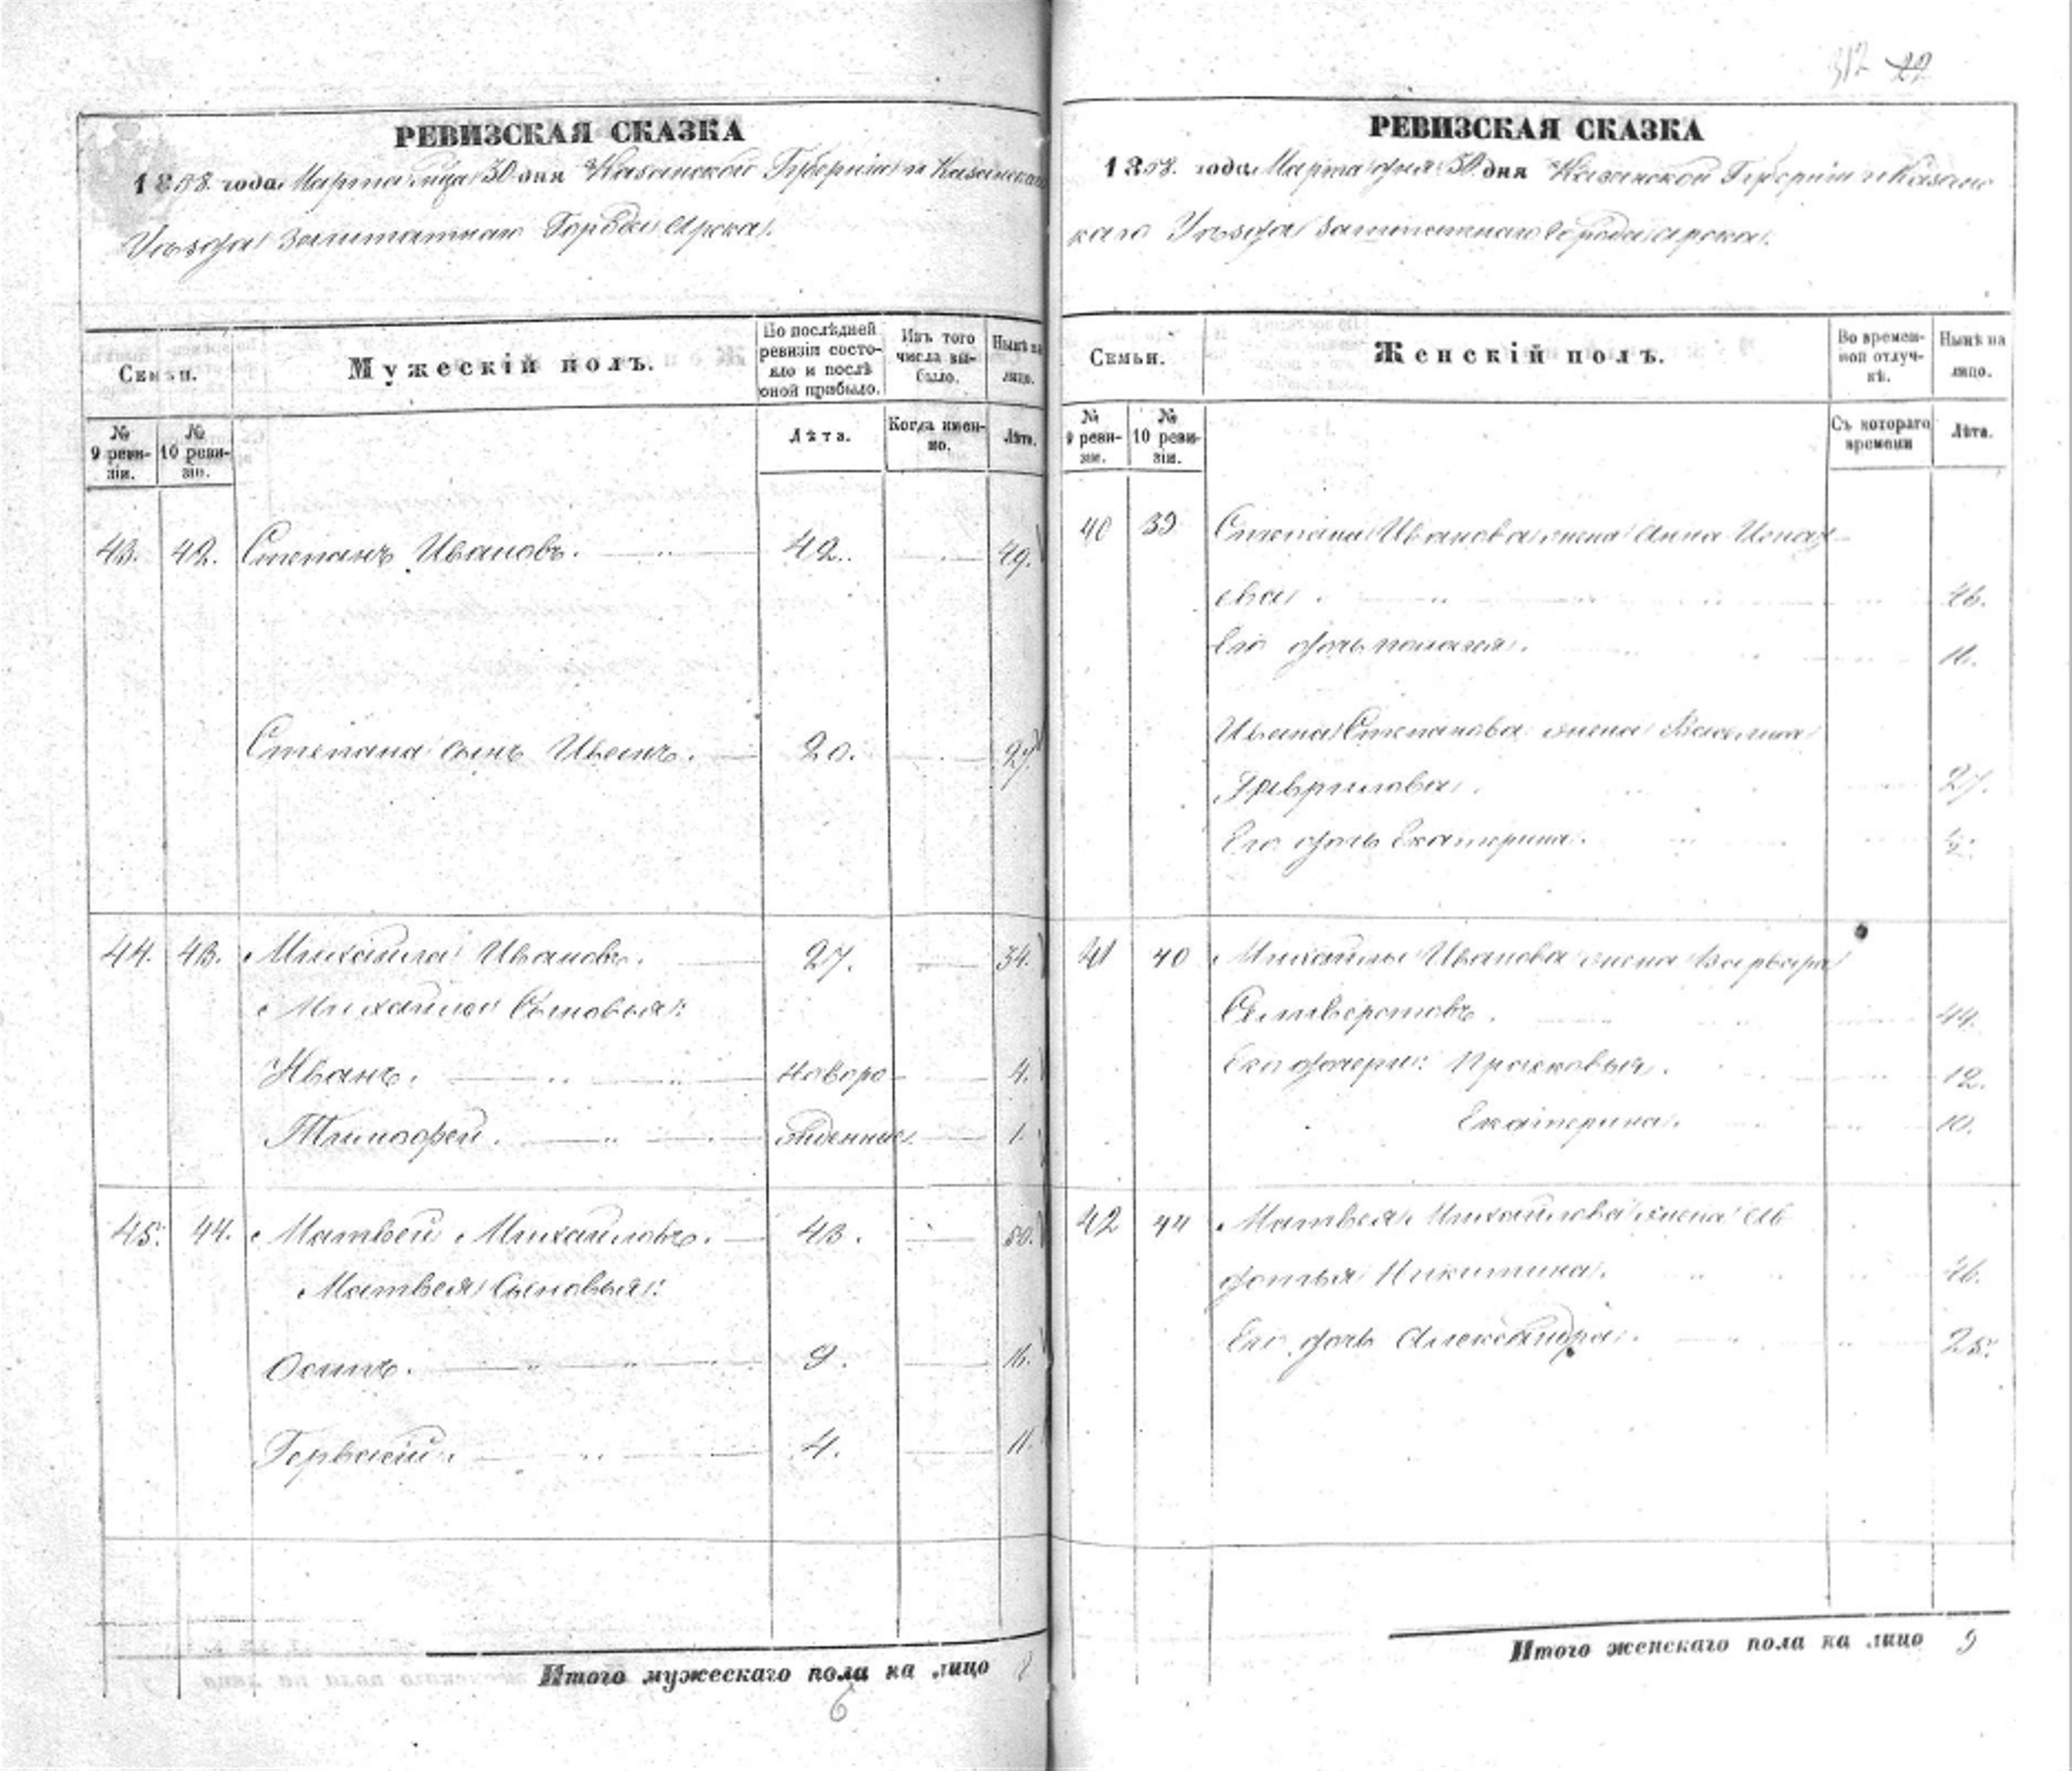 312 22
РЕВИЗСКАЯ СКАЗКА
1858. года Марта м-ца 30 дня Казанской Губерніи и Казанскаго
Уѣзда Заштатнаго Города Арска.
Семьи.
Мужескій полъ.
По послѣдней ревизіи состояло и послѣ оной прибыло.
Изъ того числа выбыло.
Нынѣ на лицо.
№ 9 ревизіи.
№ 10 ревизіи.
Лѣта.
Когда именно.
Лѣта.
43. 42. Степанъ Ивановъ. 42. 49.
Степана сынъ Иванъ. 20. 27.
44. 43. Михаила Ивановъ. 27. 34.
Михайлы Сыновья:
Иванъ. новоро- 4.
Тимофей. жденные. 1.
45. 44. Матвей Михайловъ. 43. 50.
Матвея Сыновья:
Осипъ. 9. 16.
Гервасій. 4. 11.
Итого мужескаго пола на лицо
6
РЕВИЗСКАЯ СКАЗКА
1858. года Марта дня 30 дня Казанской Губерніи и Казанс
каго Уѣзда Заштатнаго Города Арска.
Семьи.
Женскій полъ.
Во временной отлучкѣ.
Нынѣ на лицо.
№ 9 ревизіи.
№ 10 ревизіи.
Съ котораго времени
Лѣта.
40 39 Степана Иванова жена Анна
ева. 46.
Его дочь Пелагея. 11.
Ивана Степанова жена
Гаврилова. 27.
Его дочь Екатерина.
41 40 Михайлы Иванова жена Варвара
Селиверстовъ. 44.
Его дочери: Прасковья. 12.
Екатерина. 10.
42 44 Матвея Михайлова жена Ав
дотья Никитина. 46.
Его дочь Александра. 25.
Итого женскаго пола на лицо 9